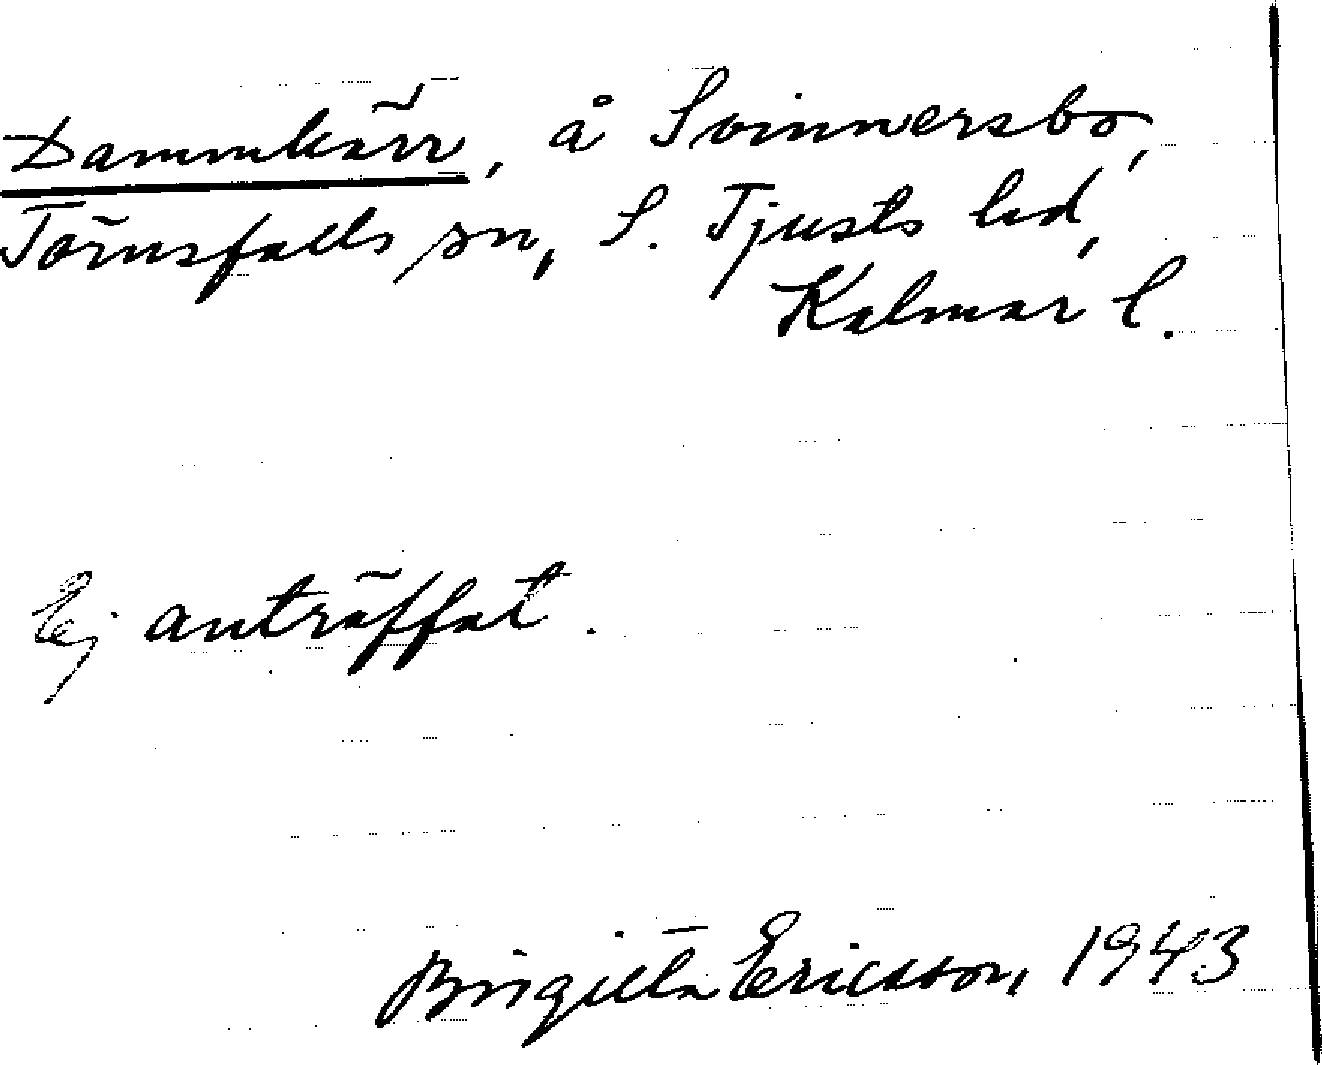 Dammkärr, å Svinnersbo,
Törnsfalls sn, S. Tjusts hd,
Kalmar l.
Ej anträffat.
Birgitta Ericsson, 1943